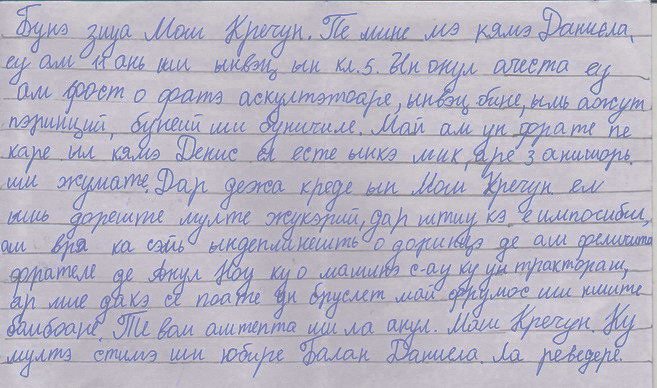 Бунэ зиуа Мош Кречун. Пе мине мэ кямэ Даниела,
еу ам 11 ань ши ынвэц ын кл. 5. Ын онул ачеста еу
ам фост о фатэ аскултэтоаре, ынвэц бине, ымь ажут
пэринций, бунеий ши буничиле. Май ам ун фрате пе
каре ыл кямэ Денис ел есте ынкэ мик, аре 3 анишорь
ши жумате. Дар дежа креде ын Мош Кречун ел
ышь дореште мулте жукэрий, дар штиу кэ е импосибил,
ам вря ка сэйь ындеплинешть о доринцэ де ам феличита
фрателе де Анул Ноу ку о машинэ с-ау ку ун тракторат,
ар мие дакэ се поате ун бруслет май фрумос ши ниште
бамбоане. Те вом аштепта ши ла анул. Мош Кречун. Ку
мултэ стимэ ши юбире Балан Даниела. Ла реведере.